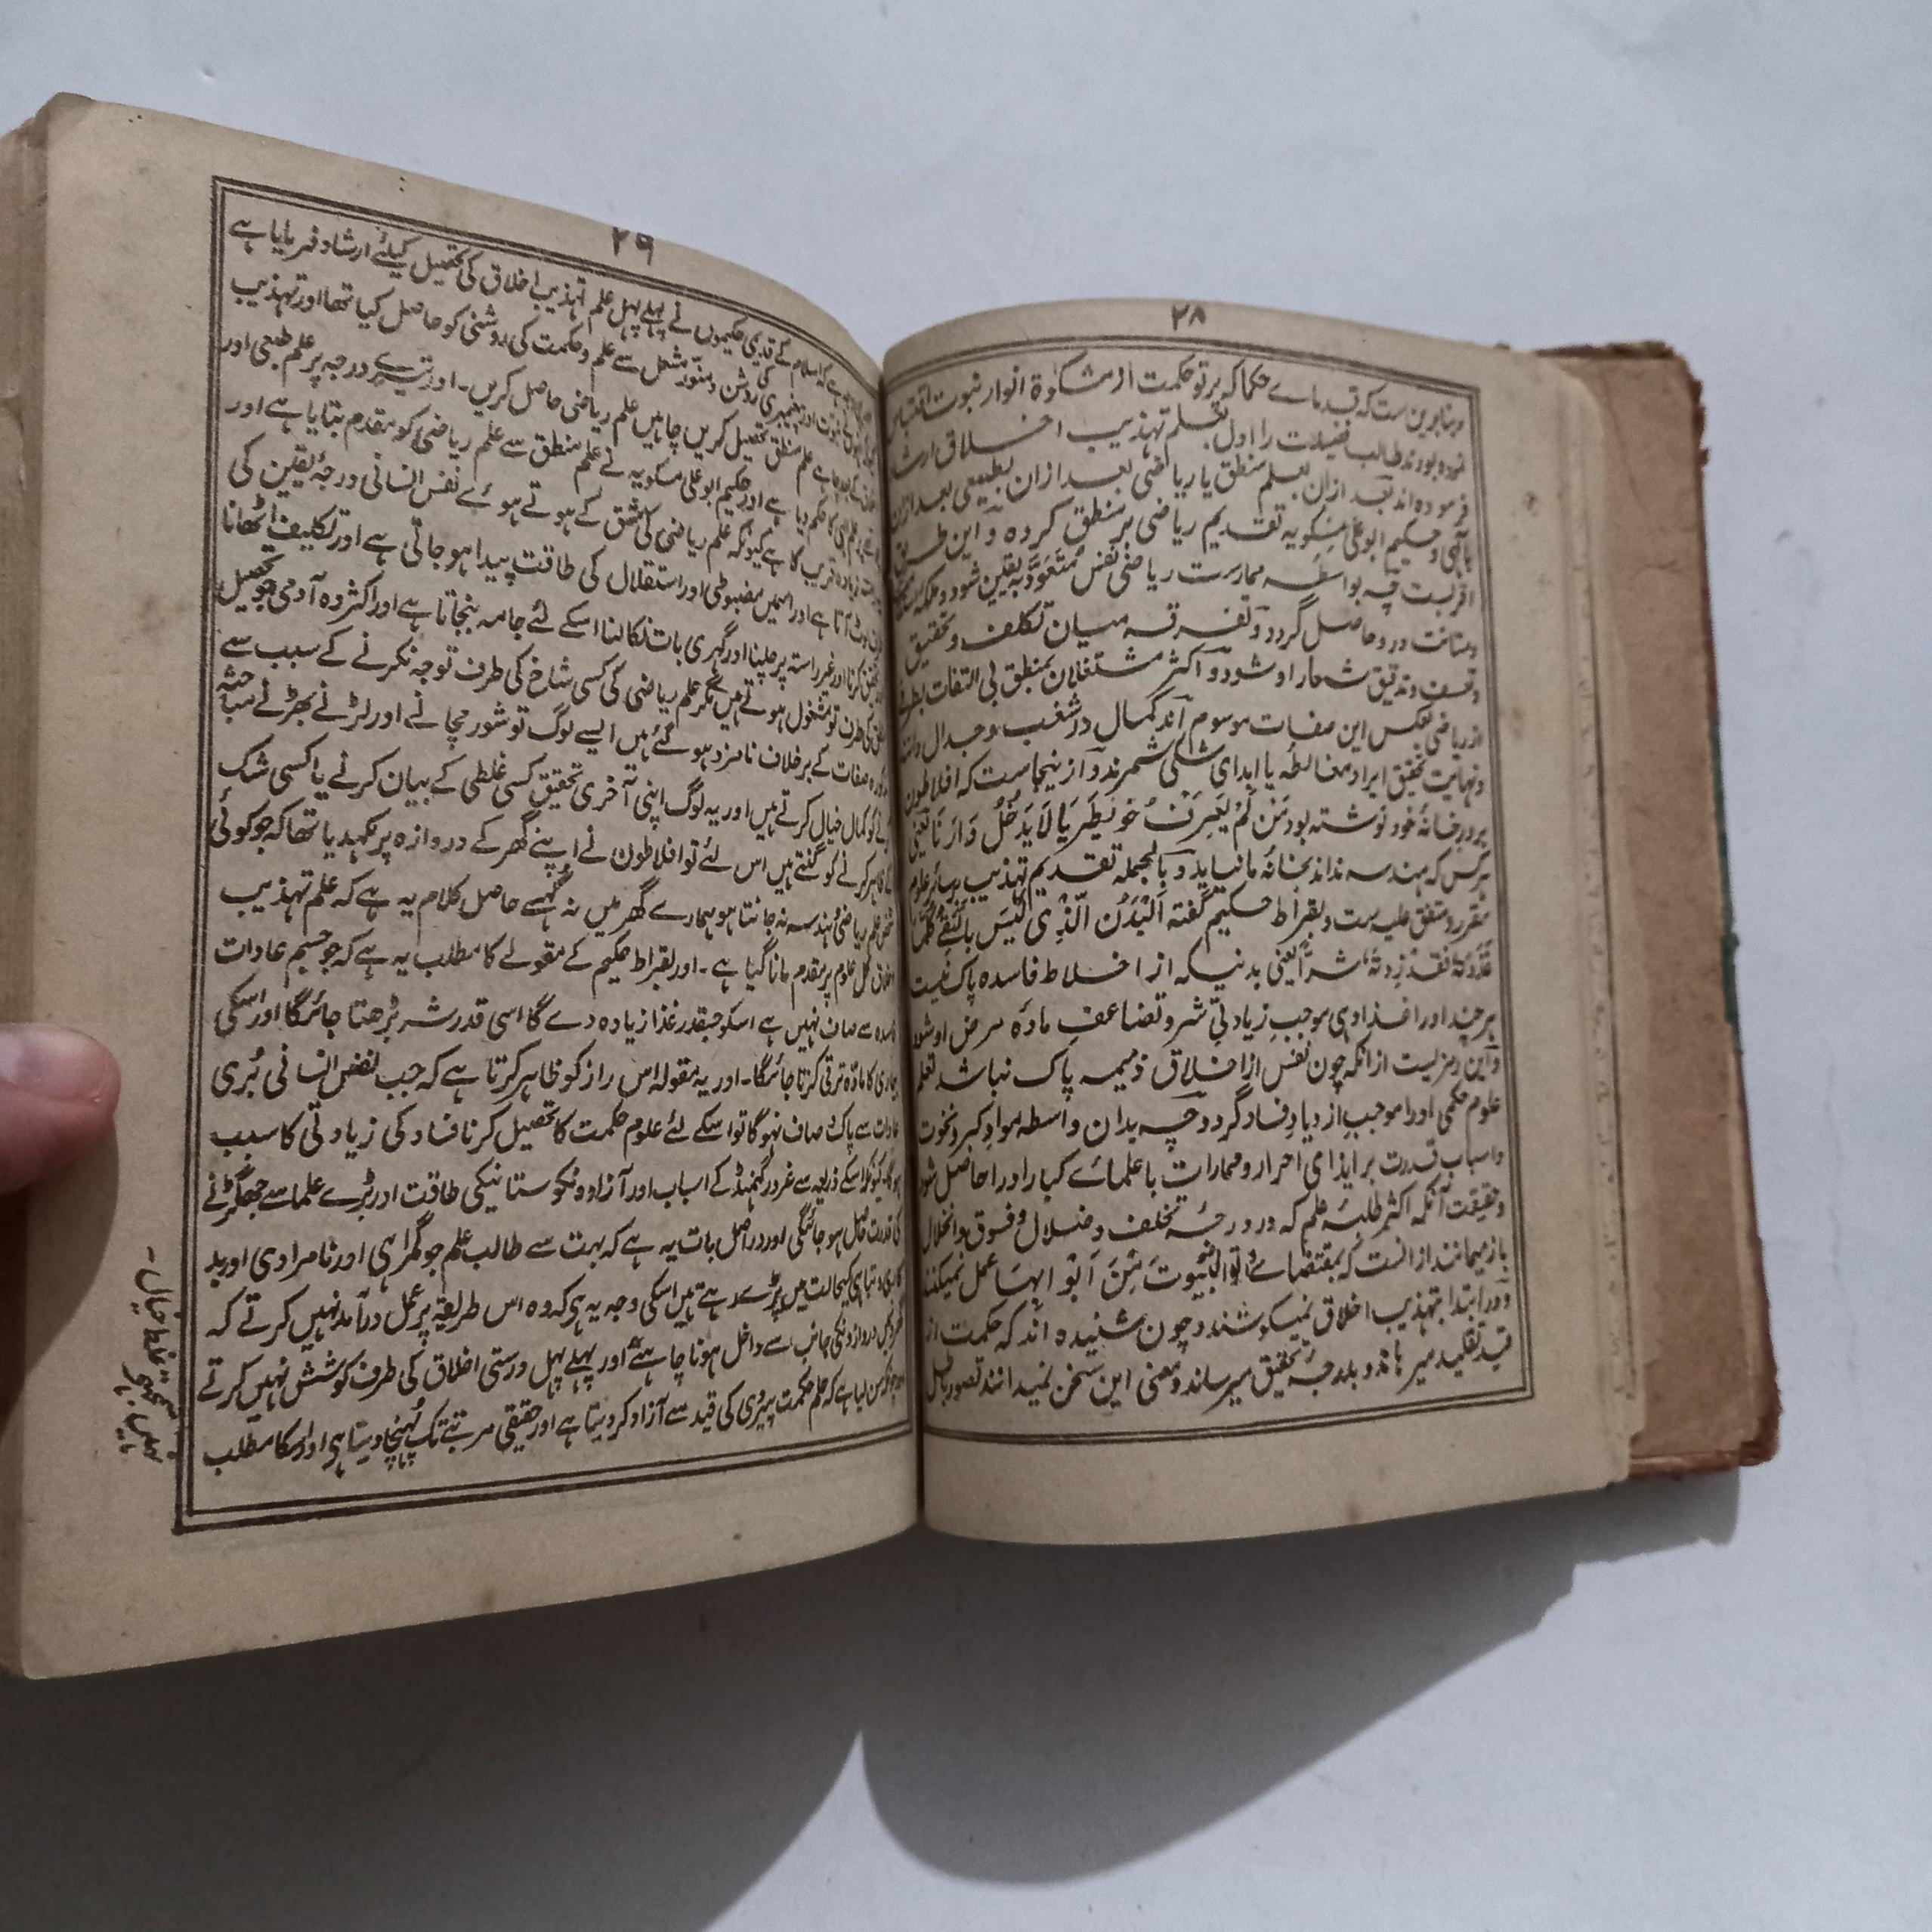 ۲۸
و بنا برین ست کہ قدماے حکما کہ پرتو حکمت از مشکوٰۃ انوار نبوت اقتباس
نمودہ بودند طالب فضیلت را اول بتعلم تہذیب اخلاق ارشاد
فرمودہ اند بعد ازان بعلم منطق یا ریاضی بعد ازان بطبیعی بعد ازان
بالٰہی و حکیم ابو علی مسکویہ تقدیم ریاضی بر منطق کردہ و این طریق
اقربست چہ بواسطہ ممارست ریاضی نفس متعود بہ یقین شود و ملکہ
ومتانت در و حاصل گردد و تفرقہ میان تکلف و تحقیق
و تعسف و تدقیق شعار او شود و اکثر مشتغلان بمنطق بی التفات بطرف
از ریاضی بعکس این صفات موسوم اند کمال در شغب و جدال دانند
و نہایت تحقیق ایراد مغالطہ یا ابدای شکی شمرند و از ینجاست کہ افلاطون
بر در خانۂ خود نوشتہ بود مَنْ لَمْ یَعْرِفْ جُوْمَطْرِیَا لَا یَدْخُلْ دَارَنَا یعنی
ہر کس کہ ہندسہ نداند بخانۂ ما نیاید و بالجملہ تقدیم تہذیب بر سائر علوم
مقرر و متفق علیہ ست و بقراط حکیم گفتہ اَلْبَدَنُ الَّذِیْ لَیْسَ بِالنَّقِیِّ کُلَّمَا
غَذَوْتَہٗ فَقَدْ زِدْتَہٗ شَرًّا یعنی بدنیکہ از اخلاط فاسدہ پاک نیست
ہر چند اورا غذا دہی موجب زیادتی شر و تضاعف مادۂ مرض او شود
و این رمزیست ازانکہ چون نفس از اخلاق ذمیمہ پاک نباشد تعلم
علوم حکمی اورا موجب ازدیاد فساد گردد چہ بدان واسطہ مواد کبر و نخوت
و اسباب قدرت بر ایذای احرار و ممارات با علماے کبار اورا حاصل شود
و حقیقت آنکہ اکثر طلبۂ علم کہ در ورطۂ تخلف و ضلال و فسوق و انحلال
باز میمانند از انست کہ بمقتضاے وَأْتُوا الْبُیُوْتَ مِنْ اَبْوَابِہَا عمل نمیکنند
و در ابتدا بتہذیب اخلاق نمیکوشند و چون شنیدہ اند کہ حکمت از
قید تقلید میرہاند و بدرجۂ تحقیق میرساند و معنی این سخن نمیدانند تصور باطل
۲۹
ہے کہ اسلام کے قدیمی حکیموں نے پہلے پہل علم تہذیب اخلاق کی تحصیل کیلئے ارشاد فرمایا ہے
نبوت اور پیغمبری کی روشن و منور مشعل سے علم و حکمت کی روشنی کو حاصل کیا تھا اور تہذیب
علم منطق تحصیل کریں چاہیں علم ریاضی حاصل کریں۔ اور تیسرے درجہ پر علم طبعی اور
علم الٰہی کا حکم دیا ہے اور حکیم ابو علی مسکویہ نے علم منطق سے علم ریاضی کو مقدم بتایا ہے اور
زیادہ قریب کا ہے کیونکہ علم ریاضی کی مشق کے ہوتے ہوئے نفس انسانی درجۂ یقین کی
لوٹ آتا ہے اور اسمیں مضبوطی اور استقلال کی طاقت پیدا ہو جاتی ہے اور تکلیف اٹھانا
تحقیق کرنا اور غیر راستہ پر چلنا اور گہری بات نکالنا اسکے لئے جامہ بنجاتا ہے اور اکثر وہ آدمی جو تحصیل
منطق کی طرف تو مشغول ہوتے ہیں مگر علم ریاضی کی کسی شاخ کی طرف توجہ نکرنے کے سبب سے
مذکورہ صفات کے برخلاف نامزد ہو گئے ہیں ایسے لوگ تو شور مچانے اور لڑنے بھڑنے مباحثہ
کرنے کو کمال خیال کرتے ہیں اور یہ لوگ اپنی آخری تحقیق کسی غلطی کے بیان کرنے یا کسی شک
کے ظاہر کرنے کو گنتے ہیں اس لئے تو افلاطون نے اپنے گھر کے دروازہ پر لکھدیا تھا کہ جو کوئی
شخص علم ریاضی و ہندسہ نہ جانتا ہو ہمارے گھر میں نہ گھسے حاصل کلام یہ ہے کہ علم تہذیب
اخلاق کل علوم پر مقدم مانا گیا ہے۔ اور بقراط حکیم کے مقولے کا مطلب یہ ہے کہ جو جسم عادات
فاسدہ سے صاف نہیں ہے اسکو جسقدر غذا زیادہ دے گا اسی قدر شر بڑھتا جائیگا اور اسکی
بیماری کا مادّہ ترقی کرتا جائیگا۔ اور یہ مقولہ اس راز کو ظاہر کرتا ہے کہ جب نفس انسانی بُری
عادات سے پاک و صاف نہوگا تو اسکے لئے علوم حکمت کا تحصیل کرنا فساد کی زیادتی کا سبب
ہوگا۔ کیونکہ اسکے ذریعہ سے غرور گھمنڈ کے اسباب اور آزادونکو ستانیکی طاقت اور بڑے علما سے جھگڑنے
کی قدرت حاصل ہو جائیگی اور در اصل بات یہ ہے کہ بہت سے طالب علم جو گمراہی اور نامرادی اور بد
کاری و تباہی کیحالت میں پڑے رہے ہیں اسکی وجہ یہ ہی کہ وہ اس طریقہ پر عمل در آمد نہیں کرتے کہ
گھر میں دروازونکی جانب سے داخل ہونا چاہئے اور پہلے پہل درستی اخلاق کی طرف کوشش نہیں کرتے
سن لیا ہے کہ علم حکمت پیروی کی قید سے آزاد کر دیتا ہے اور حقیقی مرتبے تک پہنچا دیتا ہی اور اسکا مطلب
نہیں سمجھتے غلط خیال۔